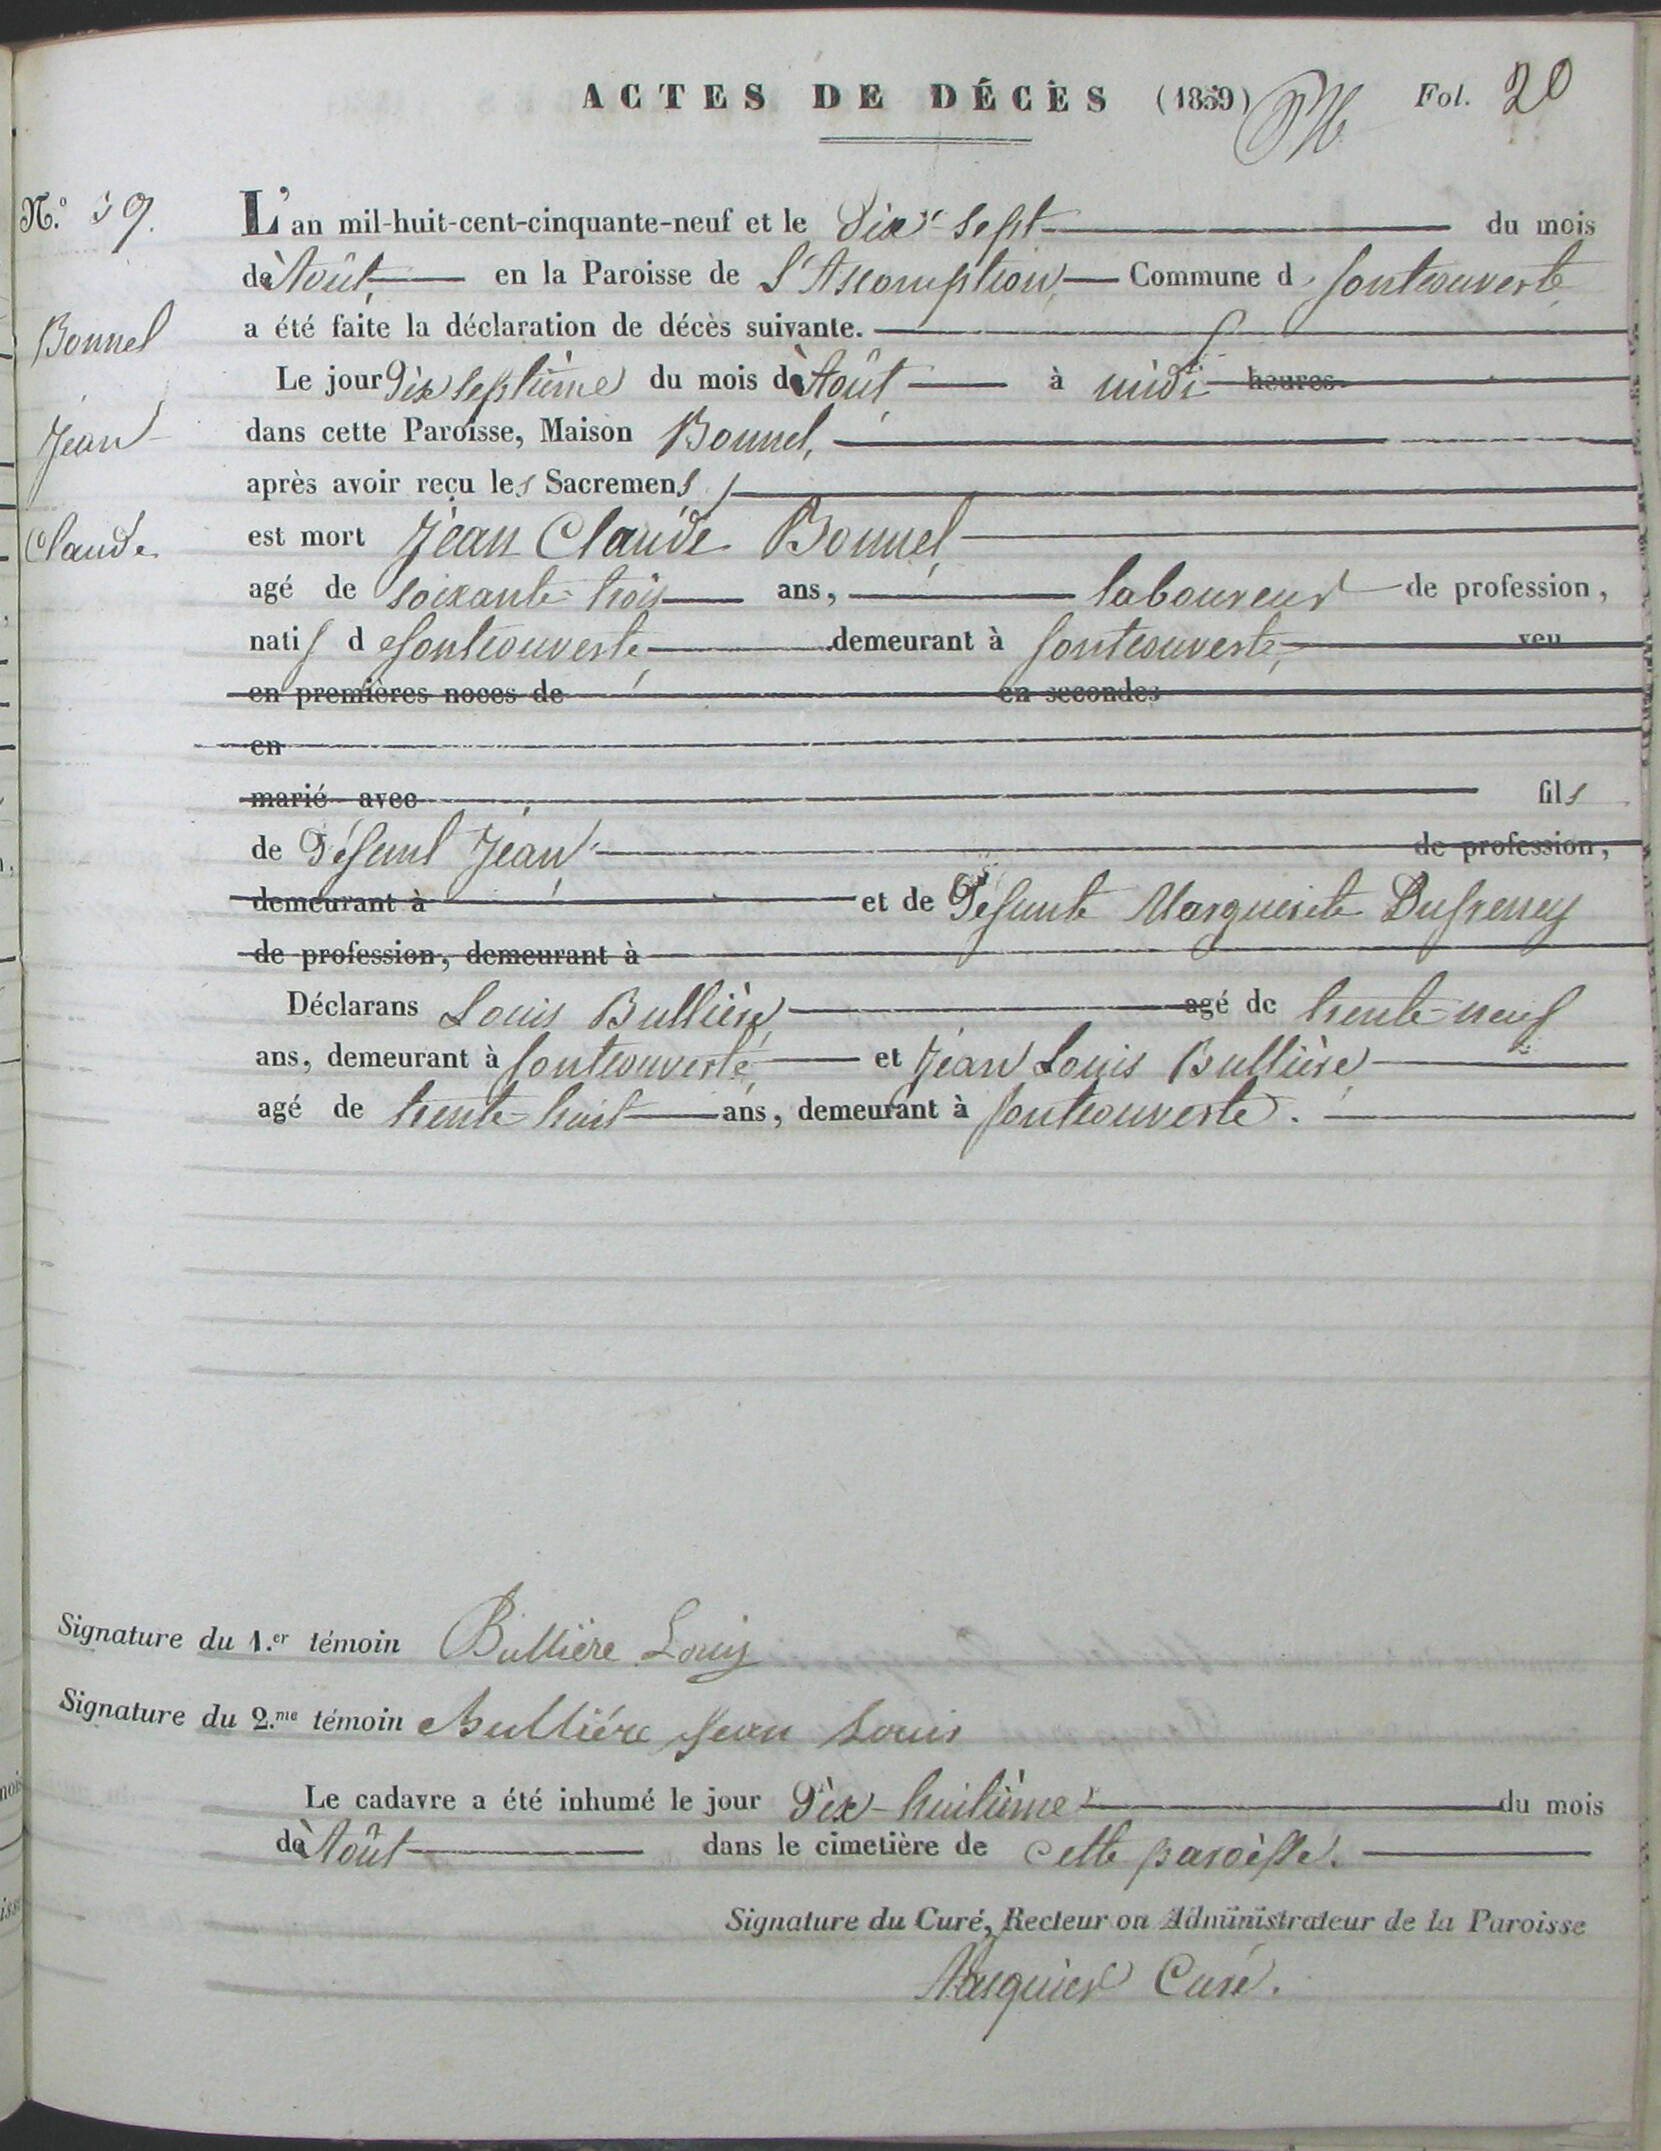 ACTES DE DÉCÈS (1859) Fol. 20
N.º 39. L'an mil-huit-cent-cinquante-neuf et le Dix-sept du mois
d'Août, en la Paroisse de l'Ascomption, Commune d fontcouverte
a été faite la déclaration de décès suivante.
Bonnel
Le jour Dix septième du mois d'Août à midi heures
Jean
dans cette Paroisse, Maison Bonnel,
après avoir reçu les Sacremens,
Claude
est mort Jean Claude Bonnel,
agé de soixante-trois ans, laboureur de profession,
natif d efontcouverte, demeurant à fontcouverte, veu
en premières noces de en secondes
en
marié avec fils
de Défunt Jean, de profession,
demeurant à et de Défunte Marguerite Dufreney
de profession, demeurant à
Déclarans Louis Bullière, agé de trente-neuf
ans, demeurant à fontcouverte, et Jean Louis Bullière
agé de trente-huit ans, demeurant à fontcouverte.
Signature du 1.er témoin Bullière Louis
Signature du 2.me témoin Bulliére Jean Louis
Le cadavre a été inhumé le jour Dix-huitième du mois
d'Août dans le cimetière de cette paroisse.
Signature du Curé, Recteur ou Administrateur de la Paroisse
Curé.